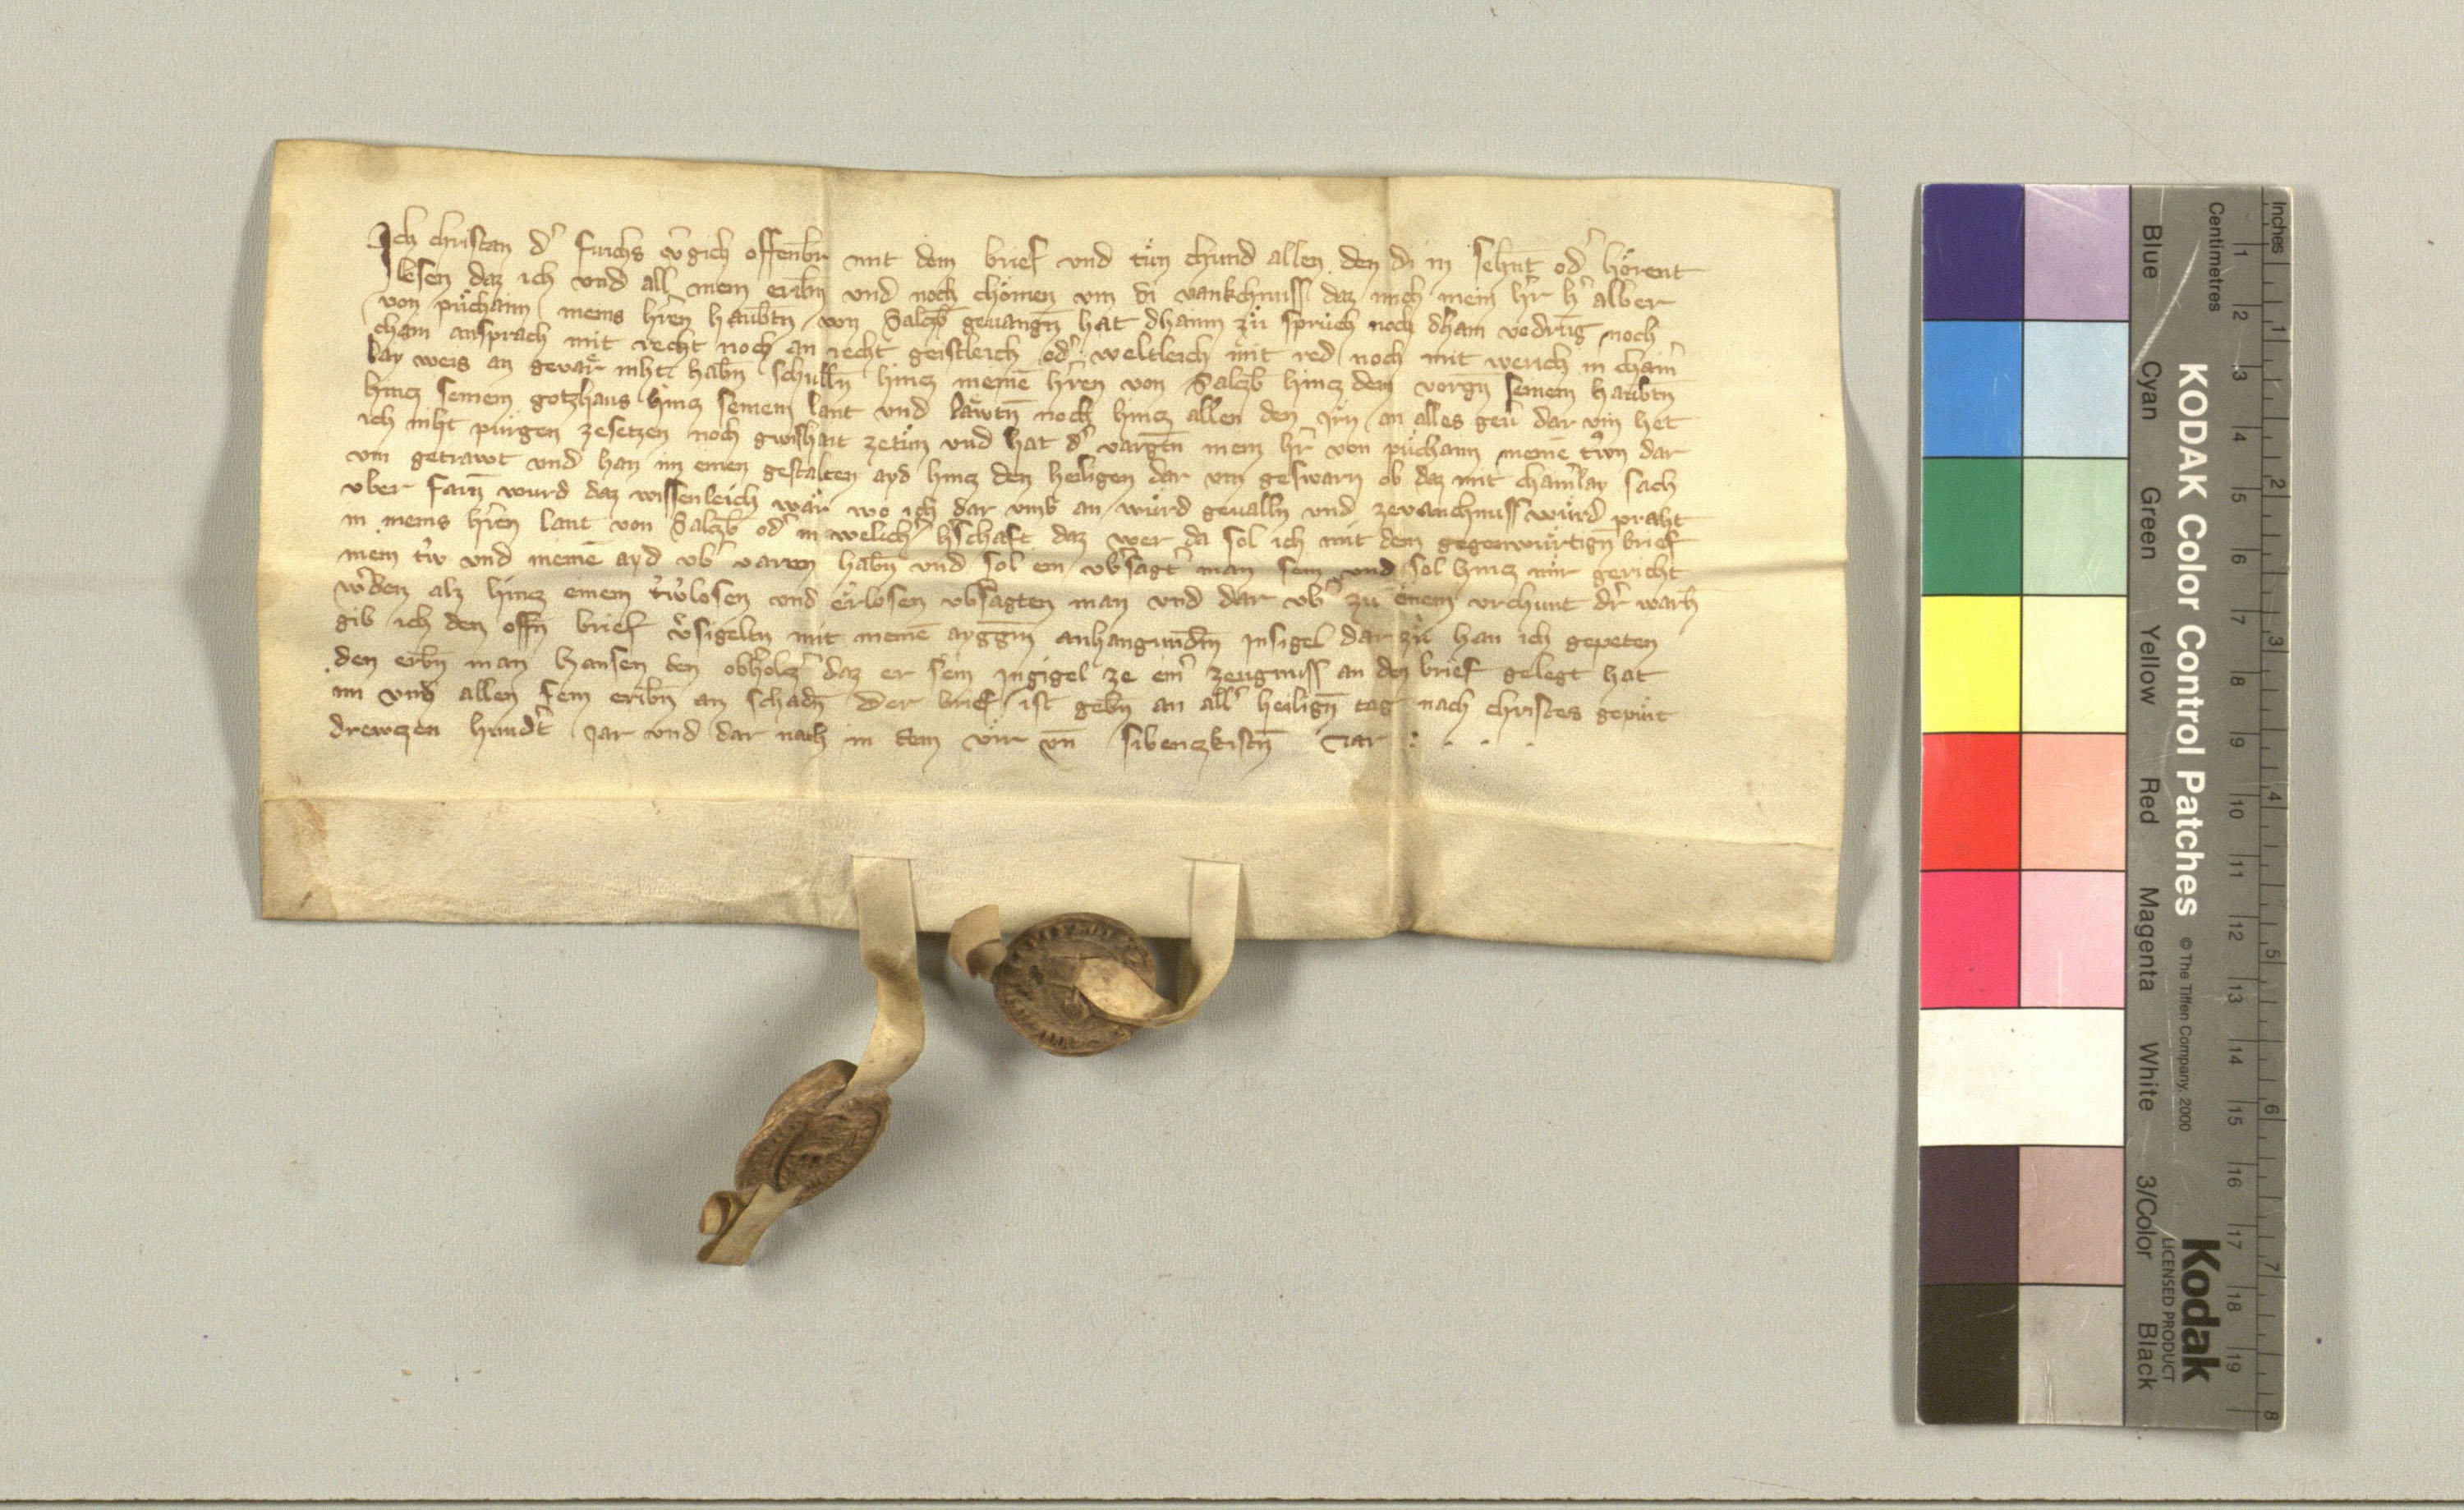 Ich christan d' fuchs v'gich offenb̄r mit dem brief vnd tuͤn chund allen den di in sehn̄t od' hoͤrent
lesen daz ich vnd all mein erib̄n vnd noch choͤmen vm di vankchnuss daz mich mein h'r h' alber
von puͤchaim meins h'ren haubtn̄ von Salczb̄ geuangn̄ hat dhainn zuͤ spruͤch noch dhain vodrūg noch
chain ansprach mit recht noch an recht geistleich od' weltleich mit red noch mit werich in chain'
lay weis an geuaͤr niht hab̄n schulln̄ hincz meinē h'ren von Salczb̄ hincz dem vorgn̄ seinem haubtn̄
hincz seinem gotzhaus hincz seinem lant vnd laͤwtn̄ noch hincz allen den irn an alles geu' dar vm het
ich niht puͤrgen zesetzen noch gwishait zetuͤn vnd hat d' vargt̄n mein h'r von puͤchaim meinē tr'wn dar
vm getrawt vnd han im einen gestalten ayd hincz den heiligen dar vm geswarn ob daz mit chain'lay sach
vber farn̄ wurd daz wissenleich waͤr wo ich dar vmb an wuͤrd geualln vnd zevanchnuss wuͤrd praht
in meins h'ren lant von Salczb̄ od' in welich' h'schaft daz wer da sol ich mit dem gegenwuͤrtign̄ brief
mein tr'w vnd meinē ayd vb' varen hab̄n vnd sol ein vb'sagt' man sein vnd sol hincz mir gericht
w'den alz hincz einem tr'wlosen vnd erlosen vb'sagten man vnd dar vb' zu einem vrchunt d'r warh̄
gib ich den offn̄ brief v'sigeltn mit meinē aygḡm anhangund̄n insigel dar zuͤ han ich gepeten
den erb̄n man hansen den obh'olcz' daz er sein ingigel ze ein' zeugnuss an den brief gelegt hat
im vnd allen sein erib̄n an schadn̄ Der brief ist geb̄n an all' heilign̄ tag nach christes gepuͤrt
drewczen hundt' Jar vnd dar nach in dem vir vn̄ sibenczkistn̄ Jar
KODAK Color Control Patches
© The Tiffen Company, 2000
Kodak
LICENSED PRODUCT
Blue Cyan Green Yellow Red Magenta White 3/Color Black
Centimetres 1 2 3 4 5 6 7 8 9 10 11 12 13 14 15 16 17 18 19
Inches 1 2 3 4 5 6 7 8